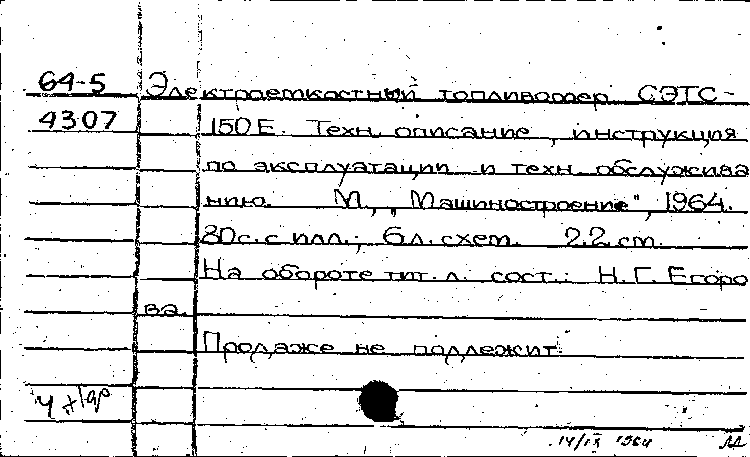 64-5 Электроемкостный топливомер СЭТС-
4307 150Е. Техн. описание, инструкция
по эксплуатации и техн. обслужива
нию. М., „Машиностроение", 1964.
80с. с илл.; 6 л. схем. 22 см.
На обороте тит. л. сост.: Н.Г. Егоро
ва.
Продаже не подлежит
14/IX 1964